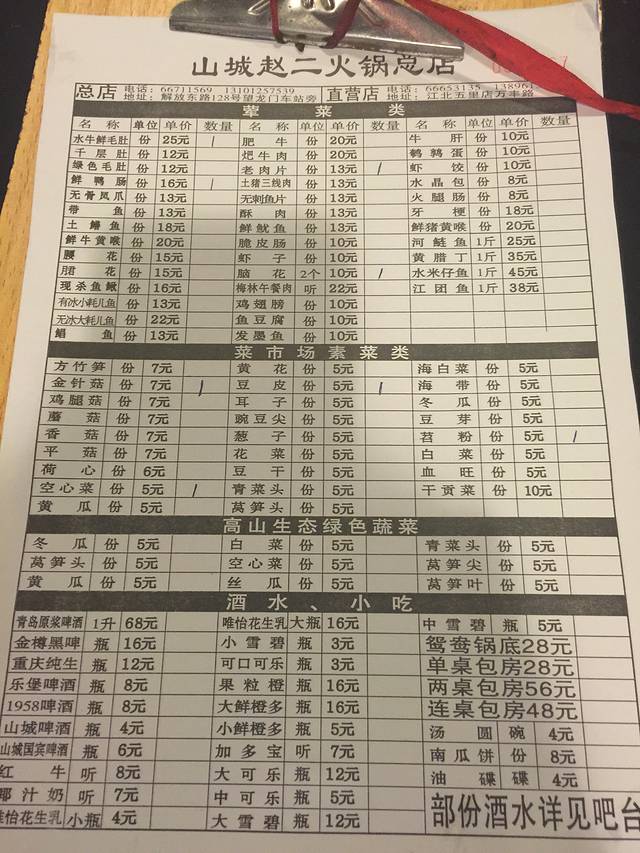 山城赵二火锅总店
总店 电话：66711569 13101257539 直营店 电话：66653135
地址：解放东路128号望龙门车站旁 地址：江北五里店万丰路
荤菜类
名称 单位 单价 数量 名称 单位 单价 数量 名称 单位 单价 数量
水牛鲜毛肚 份 25元 / 肥牛 份 20元 牛肝 份 10元
千层肚 份 12元 炮牛肉 份 20元 鹌鹑蛋 份 10元
绿色毛肚 份 12元 老肉片 份 13元 / 虾饺 份 10元
鲜鸭肠 份 16元 / 土猪三线肉 份 13元 水晶包 份 8元
无骨凤爪 份 13元 无刺鱼片 份 13元 火腿肠 份 8元
带鱼 份 13元 酥肉 份 13元 牙梗 份 18元
土鳝鱼 份 18元 鲜鱿鱼 份 13元 鲜猪黄喉 份 20元
鲜牛黄喉 份 20元 脆皮肠 份 10元 河鲢鱼 1斤 25元
腰花 份 15元 虾子 份 10元 黄腊丁 1斤 35元
郡花 份 15元 脑花 2个 10元 / 水米仔鱼 1斤 45元
现杀鱼鳅 份 16元 梅林午餐肉 听 22元 江团鱼 1斤 38元
有冰小耗儿鱼 份 13元 鸡翅膀 份 10元
无冰大耗儿鱼 份 22元 鱼豆腐 份 10元
鲳鱼 份 13元 发墨鱼 份 10元
菜市场素菜类
方竹笋 份 7元 黄花 份 5元 海白菜 份 5元
金针菇 份 7元 / 豆皮 份 5元 / 海带 份 5元
鸡腿菇 份 7元 耳子 份 5元 冬瓜 份 5元
蘑菇 份 7元 豌豆尖 份 5元 豆芽 份 5元
香菇 份 7元 葱子 份 5元 苕粉 份 5元 /
平菇 份 7元 花菜 份 5元 白菜 份 5元
荷心 份 6元 豆干 份 5元 血旺 份 5元
空心菜 份 5元 / 青菜头 份 5元 干贡菜 份 10元
黄瓜 份 5元 莴笋头 份 5元
高山生态绿色蔬菜
冬瓜 份 5元 白菜 份 5元 青菜头 份 5元
莴笋头 份 5元 空心菜 份 5元 莴笋尖 份 5元
黄瓜 份 5元 丝瓜 份 5元 莴笋叶 份 5元
酒水、小吃
青岛原浆啤酒 1升 68元 唯怡花生乳 大瓶 16元 中雪碧 瓶 5元
金樽黑啤 瓶 16元 小雪碧 瓶 3元 鸳鸯锅底28元
重庆纯生 瓶 12元 可口可乐 瓶 3元 单桌包房28元
乐堡啤酒 瓶 8元 果粒橙 瓶 16元 两桌包房56元
1958啤酒 瓶 8元 大鲜橙多 瓶 16元 连桌包房48元
山城啤酒 瓶 4元 小鲜橙多 瓶 5元 汤圆 碗 4元
山城国宾啤酒 瓶 6元 加多宝 听 7元 南瓜饼 份 8元
红牛 听 8元 大可乐 瓶 12元 油碟 碟 4元
椰汁奶 听 7元 中可乐 瓶 5元 部份酒水详见吧台
唯怡花生乳 小瓶 4元 大雪碧 瓶 12元